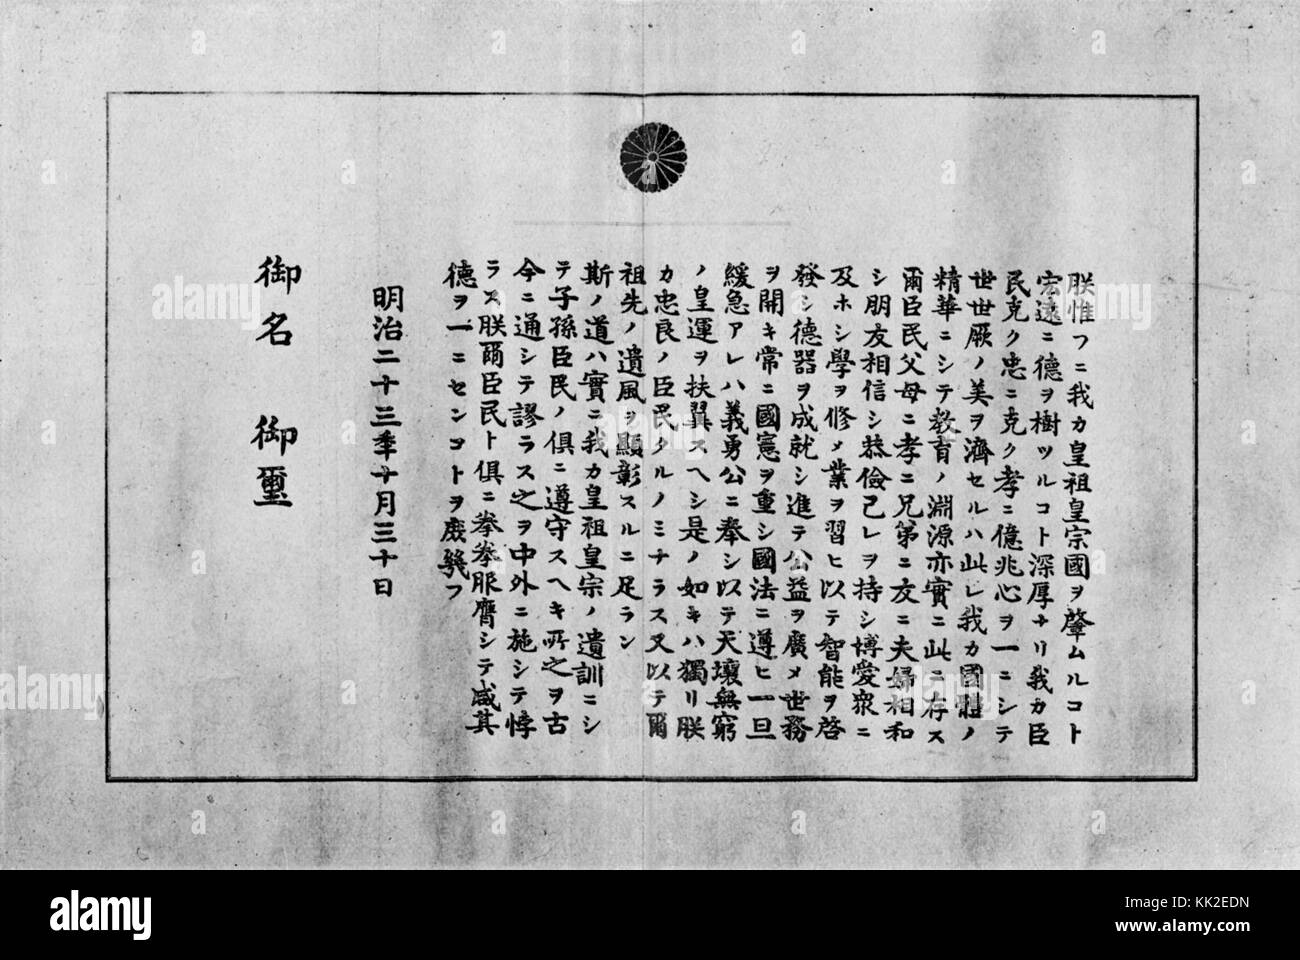 朕惟フニ我カ皇祖皇宗國ヲ肇ムルコト
宏遠ニ德ヲ樹ツルコト深厚ナリ我カ臣
民克ク忠ニ克ク孝ニ億兆心ヲ一ニシテ
世世厥ノ美ヲ濟セルハ此レ我カ國體ノ
精華ニシテ敎育ノ淵源亦實ニ此ニ存ス
爾臣民父母ニ孝ニ兄弟ニ友ニ夫婦相和
シ朋友相信シ恭儉己レヲ持シ博愛衆ニ
及ホシ學ヲ修メ業ヲ習ヒ以テ智能ヲ啓
發シ德器ヲ成就シ進テ公益ヲ廣メ世務
ヲ開キ常ニ國憲ヲ重シ國法ニ遵ヒ一旦
緩急アレハ義勇公ニ奉シ以テ天壤無窮
ノ皇運ヲ扶翼スヘシ是ノ如キハ獨リ朕
カ忠良ノ臣民タルノミナラス又以テ爾
祖先ノ遺風ヲ顯彰スルニ足ラン
斯ノ道ハ實ニ我カ皇祖皇宗ノ遺訓ニシ
テ子孫臣民ノ俱ニ遵守スヘキ所之ヲ古
今ニ通シテ謬ラス之ヲ中外ニ施シテ悖
ラス朕爾臣民ト俱ニ拳拳服膺シテ咸其
德ヲ一ニセンコトヲ庶幾フ
明治二十三年十月三十日
御名 御璽
alamy
Image ID: KK2EDN
www.alamy.com